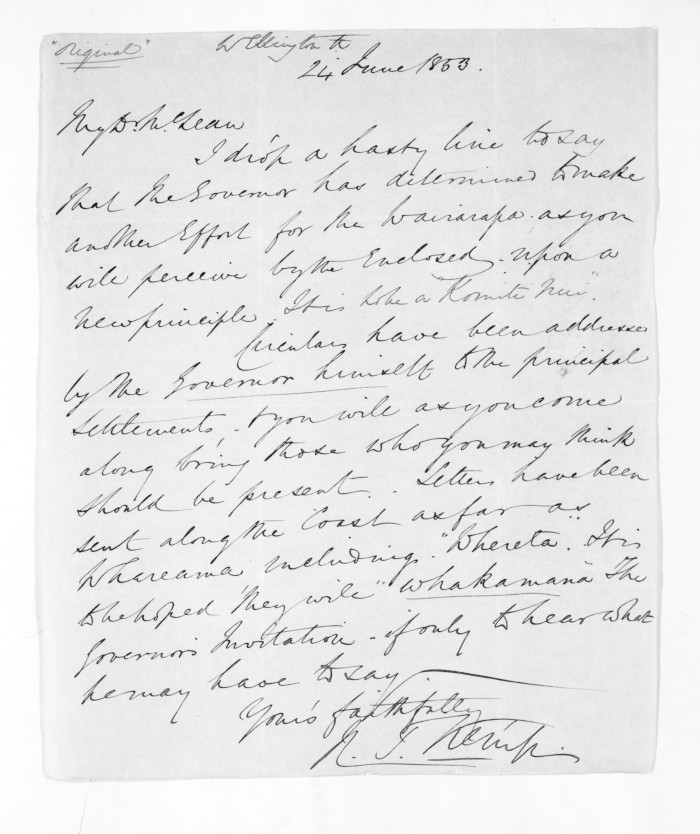 "Original"
Wellington
24 June 1853.
My Dr. McLean
I drop a hasty line to say
that the Governor has determined to make
another Effort for the Wairarapa. as you
will perceive by the Enclosed - upon a
new principle. It is to be a "Komiti Nui".
Circulars have been addressed
by the Governor himself to the principal
settlements, - & you will as you come
along bring those who you may think
should be present. Letters have been
sent along the Coast as far as
Whareama including "Whereta. It is
to be hoped they will "whakamana" The
Governor's Invitation - if only to hear what
he may have to say.
Your's faithfully
H. T. Kemp.